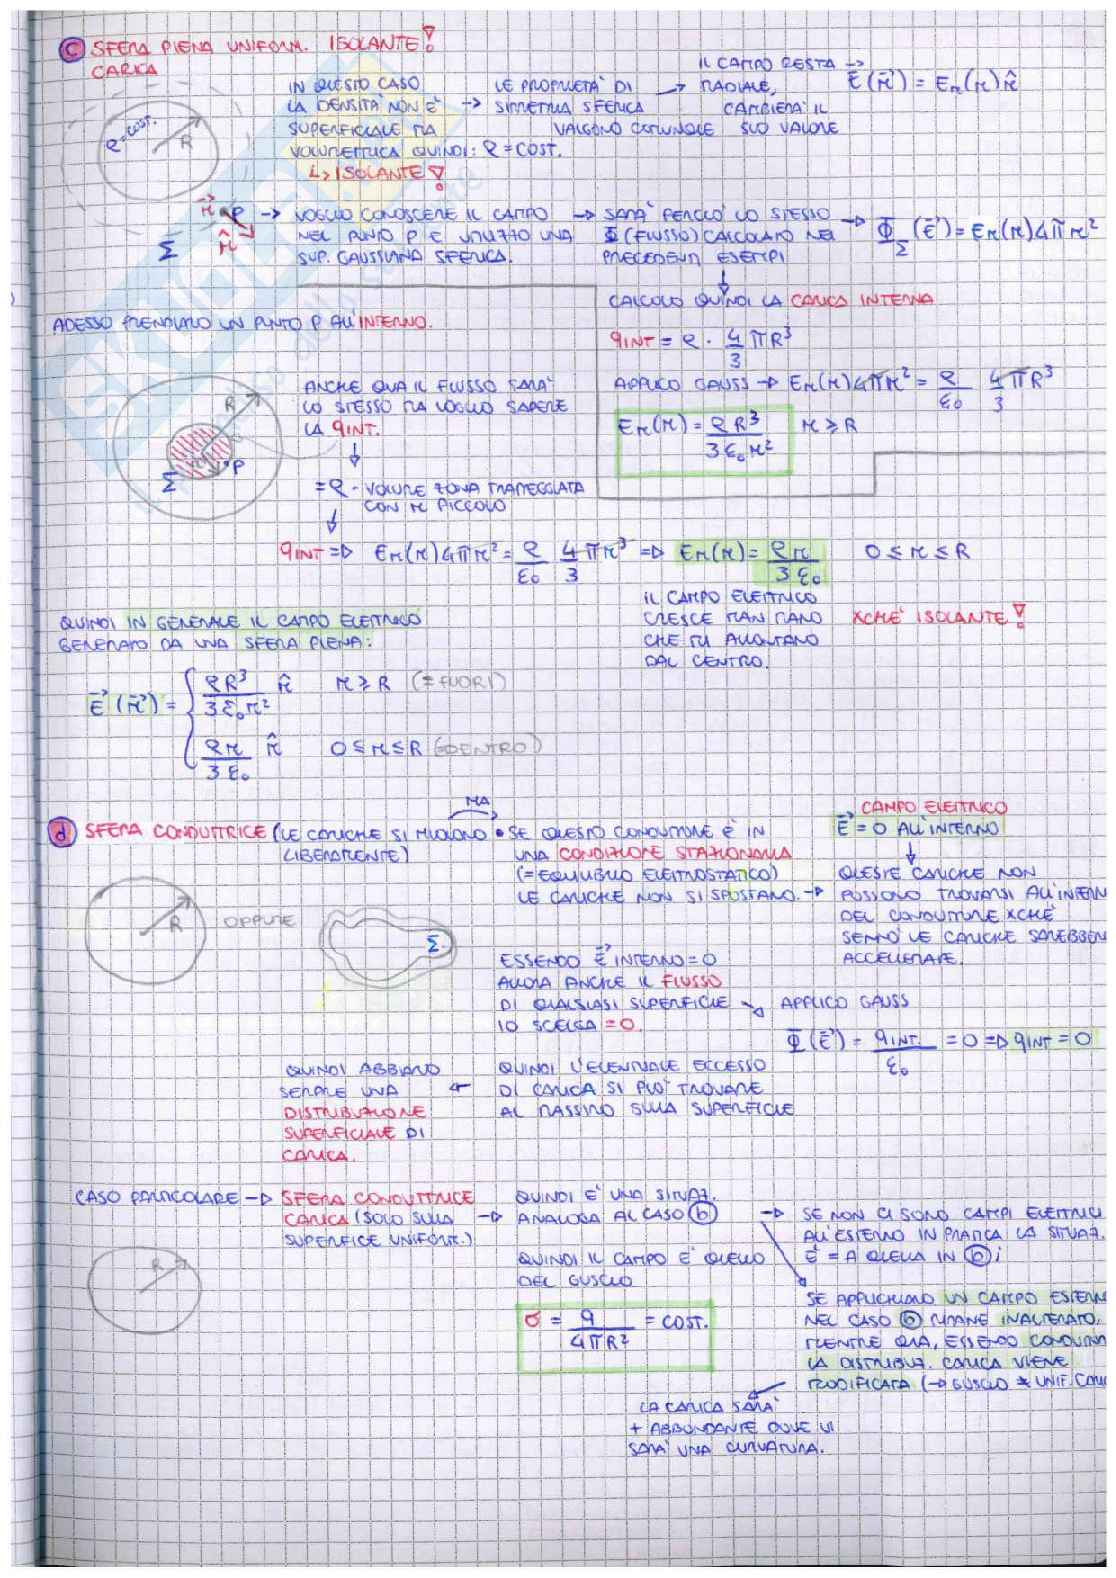 c SFERA PIENA UNIFORM. ISOLANTE!
CARICA
IN QUESTO CASO
LA DENSITÀ NON È →
SUPERFICIALE MA
VOLUMETRICA QUINDI: ρ = COST.
↳ ISOLANTE!
LE PROPRIETÀ DI →
SIMMETRIA SFERICA
VALGONO COMUNQUE
IL CAMPO RESTA →
RADIALE,
CAMBIERÀ IL
SUO VALORE
E⃗(r⃗) = Er(r) r̂
ρ=COST.
R
r⃗ P
r̂
Σ
→ VOGLIO CONOSCERE IL CAMPO
NEL PUNTO P E UTILIZZO UNA
SUP. GAUSSIANA SFERICA.
→ SARÀ PERCIÒ LO STESSO →
Φ (FLUSSO) CALCOLATO NEI
PRECEDENTI ESEMPI
Φ_Σ(E⃗) = Er(r) 4πr²
↓
CALCOLO QUINDI LA CARICA INTERNA
qINT = ρ · 4/3 πR³
APPLICO GAUSS → Er(r) 4πr² = ρ/ε₀ 4/3 πR³
Er(r) = ρR³/3ε₀r² r ≥ R
ADESSO PRENDIAMO UN PUNTO P ALL'INTERNO.
R
P
Σ
ANCHE QUA IL FLUSSO SARÀ
LO STESSO MA VOGLIO SAPERE
LA qINT.
↓
= ρ · VOLUME ZONA TRATTEGGIATA
CON r PICCOLO
↓
qINT ⇒ Er(r) 4πr² = ρ/ε₀ 4/3 πr³ ⇒ Er(r) = ρr/3ε₀ 0 ≤ r ≤ R
IL CAMPO ELETTRICO
CRESCE MAN MANO
CHE MI ALLONTANO
DAL CENTRO.
XCHÈ ISOLANTE!
QUINDI IN GENERALE IL CAMPO ELETTRICO
GENERATO DA UNA SFERA PIENA:
E⃗(r⃗) = { ρR³/3ε₀r² r̂ r ≥ R (=FUORI)
ρr/3ε₀ r̂ 0 ≤ r ≤ R (=DENTRO)
d SFERA CONDUTTRICE (LE CARICHE SI MUOVONO
LIBERAMENTE)
MA
• SE QUESTO CONDUTTORE È IN
UNA CONDIZIONE STAZIONARIA
(=EQUILIBRIO ELETTROSTATICO)
LE CARICHE NON SI SPOSTANO. →
CAMPO ELETTRICO
E⃗ = 0 ALL'INTERNO
↓
QUESTE CARICHE NON
POSSONO TROVARSI ALL'INTERN
DEL CONDUTTORE XCHÈ
SENNÒ LE CARICHE SAREBBER
ACCELERATE.
R
OPPURE
Σ
ESSENDO E⃗ INTERNO = 0
ALLORA ANCHE IL FLUSSO
DI QUALSIASI SUPERFICIE ↘
IO SCELGA = 0.
APPLICO GAUSS
Φ(E⃗) = qINT./ε₀ = 0 ⇒ qINT = 0
QUINDI L'EVENTUALE ECCESSO
DI CARICA SI PUÒ TROVARE
AL MASSIMO SULLA SUPERFICIE
QUINDI ABBIAMO
SEMPRE UNA ←
DISTRIBUZIONE
SUPERFICIALE DI
CARICA.
CASO PARTICOLARE → SFERA CONDUTTRICE
CARICA (SOLO SULLA →
SUPERFICIE UNIFORM.)
R
QUINDI È UNA SITUAZ.
ANALOGA AL CASO b
QUINDI IL CAMPO È QUELLO
DEL GUSCIO
σ = q/4πR² = COST.
→ SE NON CI SONO CAMPI ELETTRICI
ALL'ESTERNO IN PRATICA LA SITUAZ.
È = A QUELLA IN b;
SE APPLICHIAMO UN CAMPO ESTERN
NEL CASO b RIMANE INALTERATO,
MENTRE QUA, ESSENDO CONDUTTOR
LA DISTRIBUZ. CARICA VIENE
MODIFICATA (→ GUSCIO ≠ UNIF. CARI
LA CARICA SARÀ
+ ABBONDANTE DOVE VI
SARÀ UNA CURVATURA.